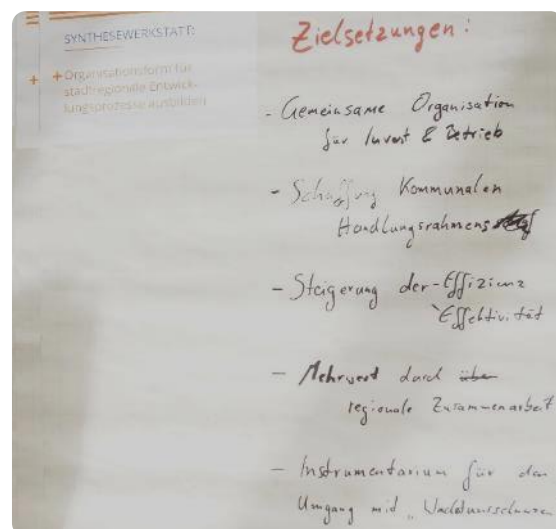 SYNTHESEWERKSTATT:
+ + Organisationsform für
stadtregionale Entwick-
lungsprozesse ausbilden
Zielsetzungen:
- Gemeinsame Organisation
für Invest & Betrieb
- Schaffung Kommunalen
Handlungsrahmens
- Steigerung der - Effizienz
Effektivität
- Mehrwert durch
regionale Zusammenarbeit
- Instrumentarium für den
Umgang mit "